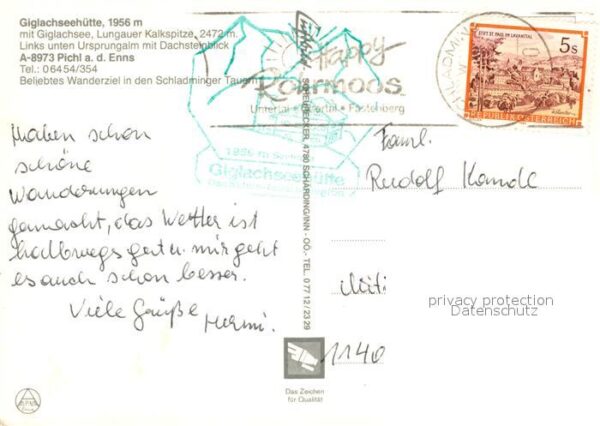 Giglachseehütte, 1956 m
mit Giglachsee, Lungauer Kalkspitze, 2472 m.
Links unten Ursprungalm mit Dachsteinblick
A-8973 Pichl a. d. Enns
Tel.: 06454/354
Beliebtes Wanderziel in den Schladminger Tauern
Happy
Rohrmoos
Untertal • Obertal • Fastenberg
SCHLADMING
STIFT ST. PAUL IM LAVANTTAL
5s
REPUBLIK ÖSTERREICH
1956 m Seehöhe
Giglachseehütte
4780 SCHÄRDING/INN - OÖ. - TEL. 0 77 12 / 23 29
Haben schon
schöne
Wanderungen
gemacht, das Wetter ist
halbwegs gut u. mir geht
es auch schon besser.
Viele Grüße
Hermi.
Faml.
Rudolf
privacy protection
Datenschutz
1140
Das Zeichen
für Qualität